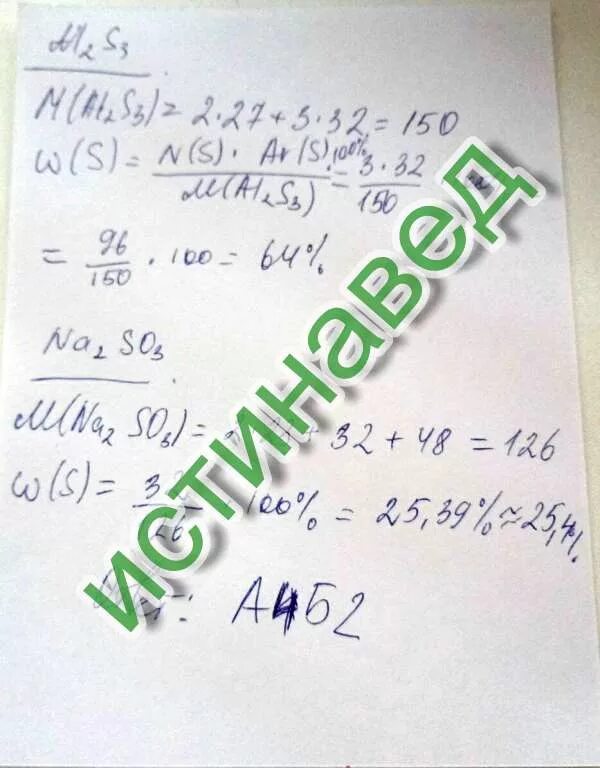 Al₂S₃
M(Al₂S₃) = 2·27 + 3·32 = 150
ω(S) = N(S) · Ar(S) · 100% / M(Al₂S₃) = 3·32 / 150
= 96/150 · 100 = 64%
Na₂SO₃
M(Na₂SO₃) = + 32 + 48 = 126
ω(S) = 100% = 25,39% ≈ 25,4%
: А4Б2
ИСТИНАВЕД